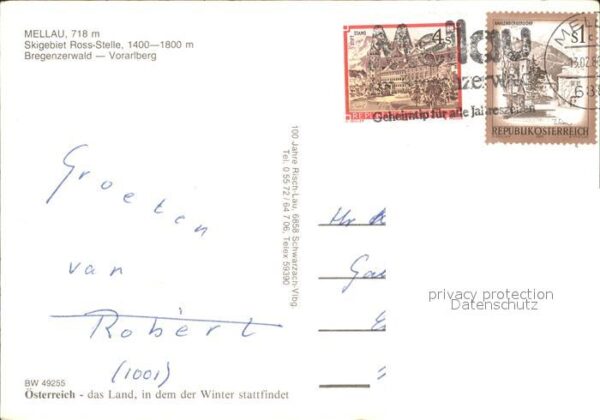 MELLAU, 718 m
Skigebiet Ross-Stelle, 1400—1800 m
Bregenzerwald — Vorarlberg
STIFT STAMS
4 S
REP
S1
REPUBLIK ÖSTERREICH
13.02.8
Geheimtip für alle Jahreszeiten
100 Jahre Risch-Lau, 6858 Schwarzach-Vlbg
Tel. 0 55 72 / 64 7 06, Telex 59390
Groeten
van
Robèrt
(1001)
privacy protection
Datenschutz
BW 49255
Österreich - das Land, in dem der Winter stattfindet